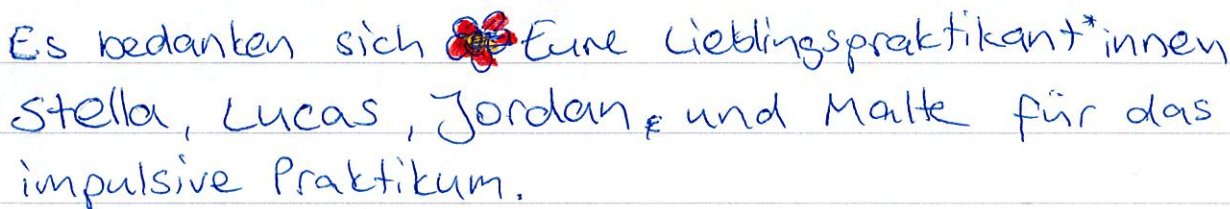 Es bedanken sich Eure Lieblingspraktikant*innen
Stella, Lucas, Jordan, und Malte für das
impulsive Praktikum.